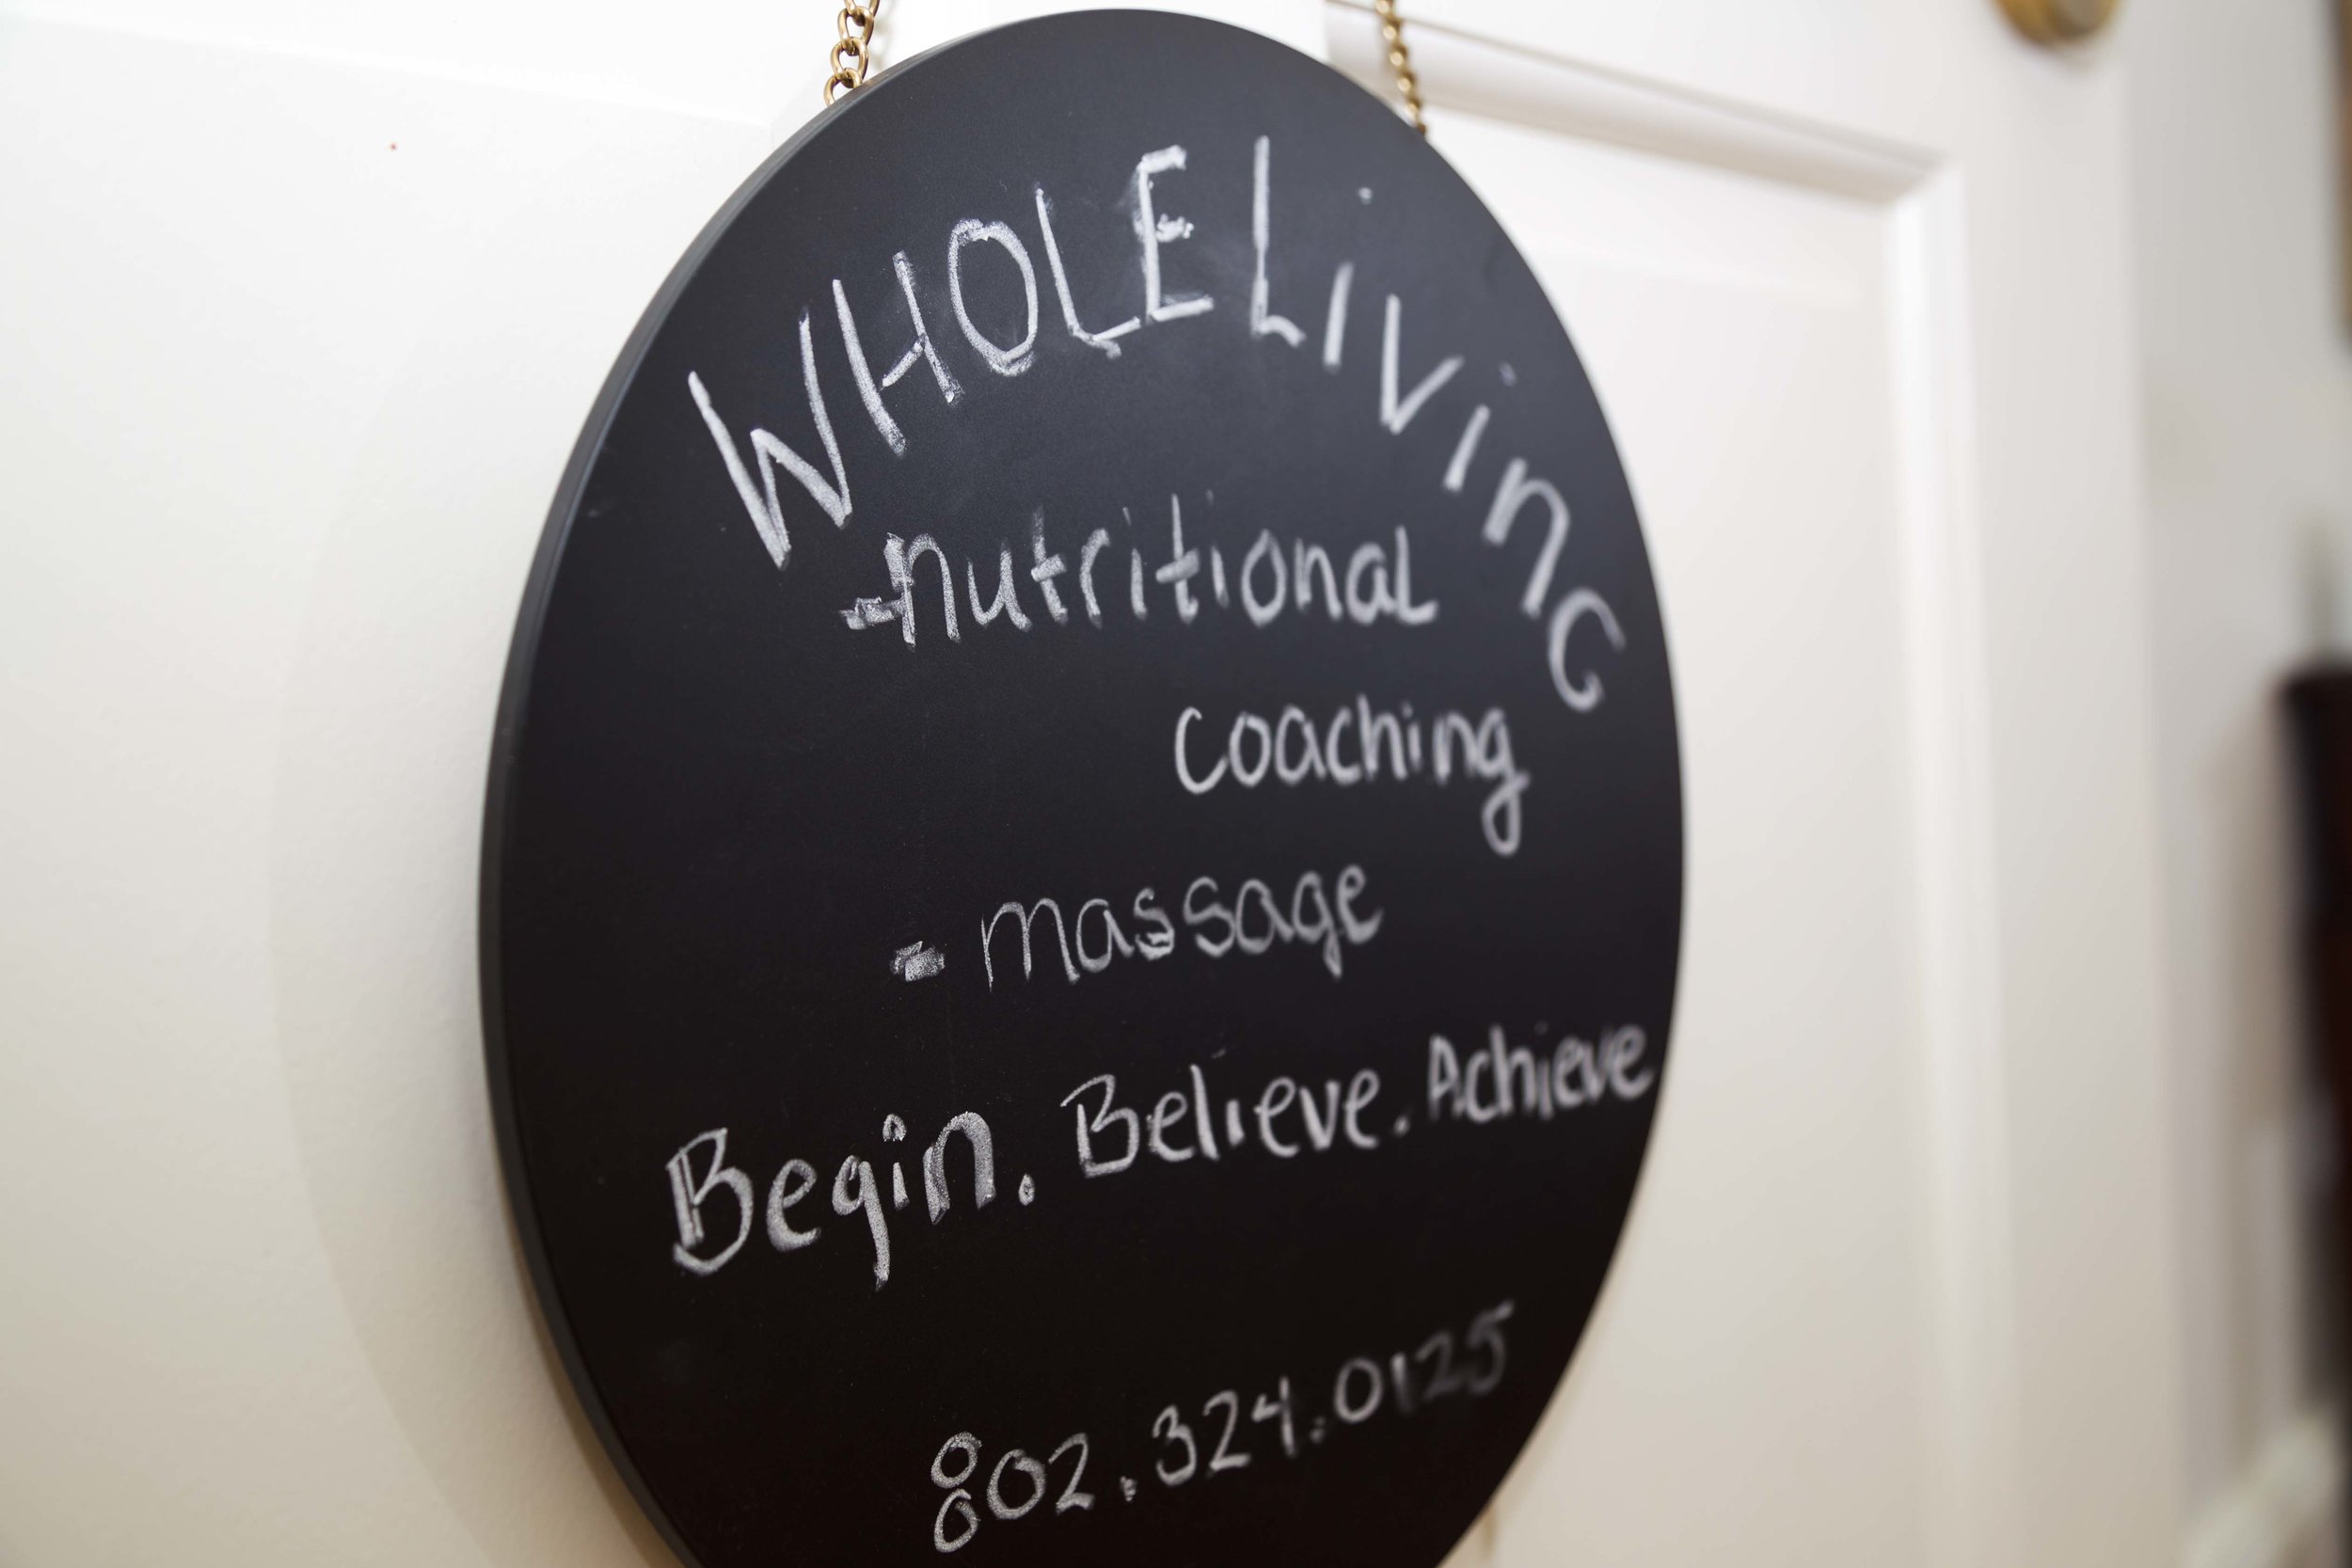 WHOLE LiVinG
-nutritional
coaching
- massage
Begin. Believe. Achieve
802.324.0125